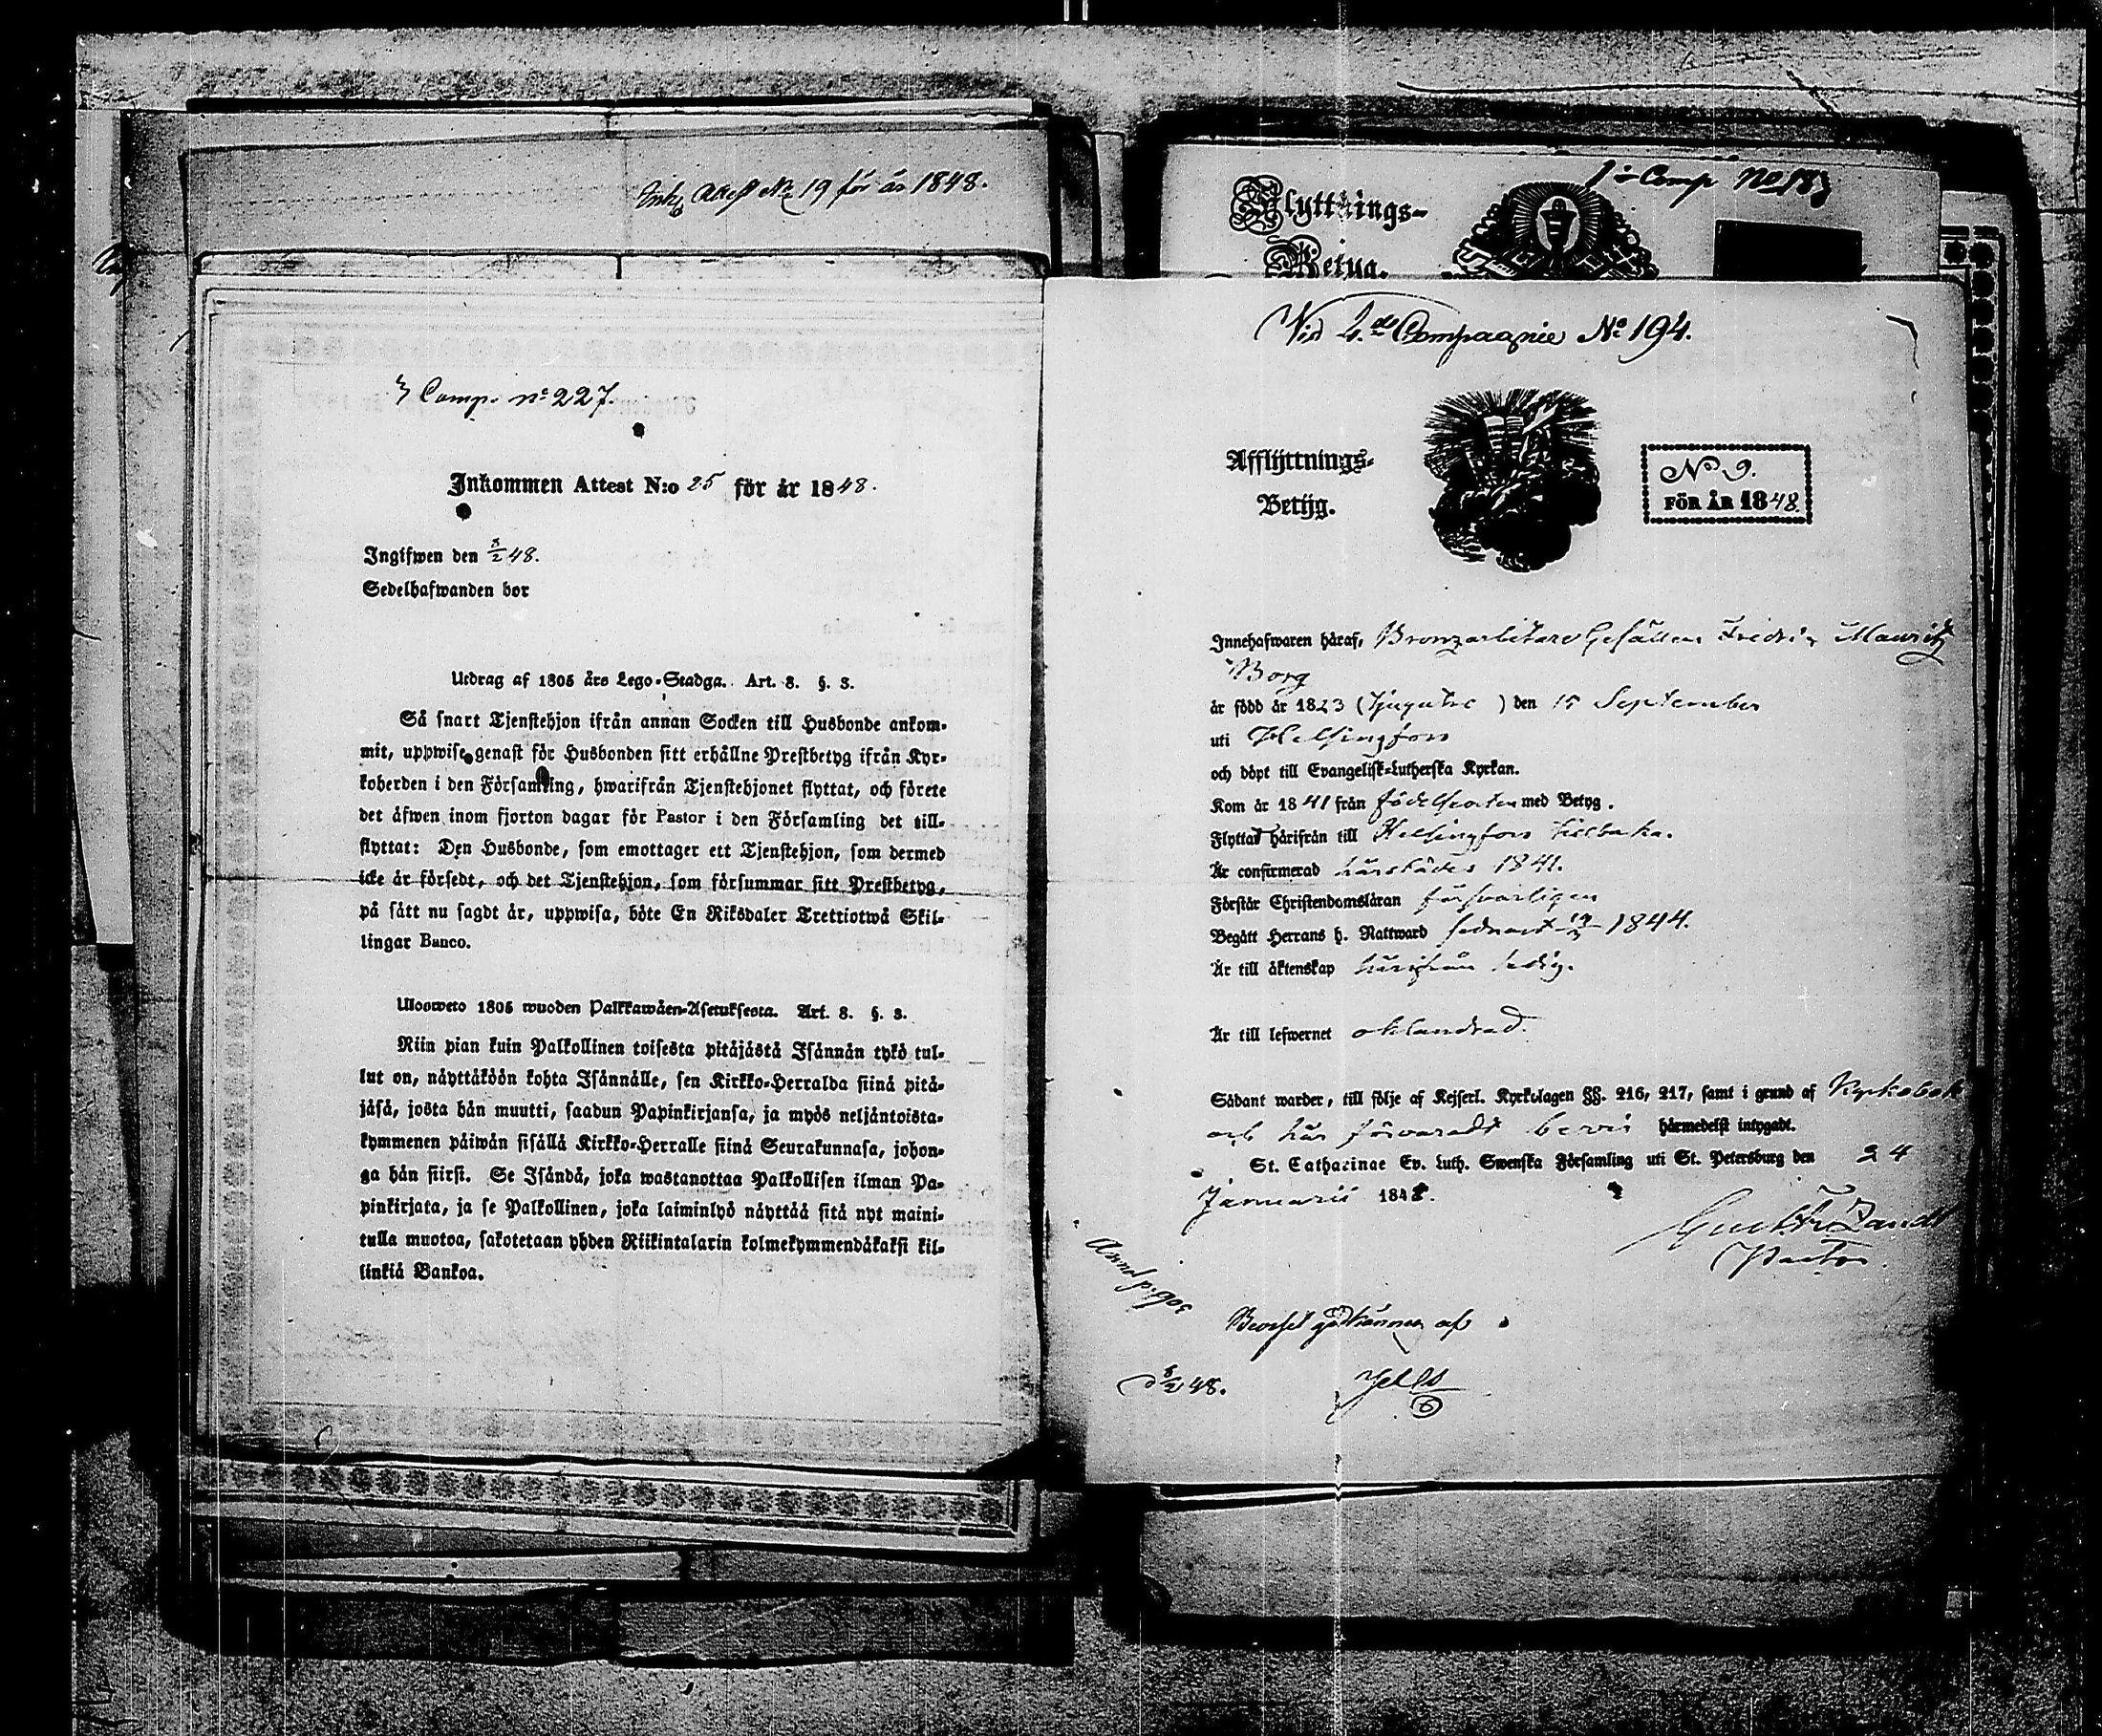 Ink. Attest No 19 för år 1848.
3 Comp. No 227.
Inkommen Attest N:o 25 för år 1848.
Ingifwen den 3/2 48.
Sedelhafwanden bor
Utdrag af 1805 års Lego-Stadga. Art. 8. §. 3.
Så snart Tjenstehjon ifrån annan Socken till Husbonde ankom-
mit, uppwise genast för Husbonden sitt erhållne Prestbetyg ifrån Kyr-
koherden i den Församling, hwarifrån Tjenstehjonet flyttat, och förete
det äfwen inom fjorton dagar för Pastor i den Församling det till-
flyttat: Den Husbonde, som emottager ett Tjenstehjon, som dermed
icke är försedt, och det Tjenstehjon, som försummar sitt Prestbetyg,
på sätt nu sagdt är, uppwisa, böte En Riksdaler Trettiotwå Skil-
lingar Banco.
Ulosweto 1805 wuoden Palkkawäen-Asetuksesta. Art. 8. §. 3.
Niin pian kuin Palkollinen toisesta pitäjästä Isännän tykö tul-
lut on, näyttäköön kohta Isännälle, sen Kirkko-Herralda siinä pitä-
jäsä, josta hän muutti, saadun Papinkirjansa, ja myös neljäntoista-
kymmenen päiwän sisällä Kirkko-Herralle siinä Seurakunnasa, johon-
ga hän siirsi. Se Isändä, joka wastanottaa Palkollisen ilman Pa-
pinkirjata, ja se Palkollinen, joka laiminlyö näyttää sitä nyt maini-
tulla muotoa, sakotetaan yhden Riikintalarin kolmekymmendäkaksi kil-
linkiä Bankoa.
Comp No 183
Flyttnings-
Betyg.
Vid 4.de Compagnie No 194.
Afflyttnings-
Betyg.
No 9.
FÖR ÅR 1848.
Innehafwaren häraf, Bronzarbetare Gesällen Fredric Mauritz
Borg
är född år 1823 (tjugutre ) den 15 September
uti Helsingfors
och döpt till Evangelisk-Lutherska Kyrkan.
Kom år 1841 från födelseorten med Betyg.
Flyttad härifrån till Helsingfors tillbaka.
Är confirmerad härstädes 1841.
Förstår Christendomsläran försvarligen
Begått Herrans h. Nattward sednast 1844.
Är till äktenskap härifrån ledig.
Är till lefwernet oklandrad.
Sådant warder, till följe af Kejserl. Kyrkolagen §§. 216, 217, samt i grund af Kyrkobok
och här förvaradt bevis härmedelst intygadt.
St. Catharinae Ev. Luth. Swenska Församling uti St. Petersburg den 24
Januarii 1848.
Gust. Fr. Zandt
Pastor.
Beviset godkännes af
d 3/2 48.